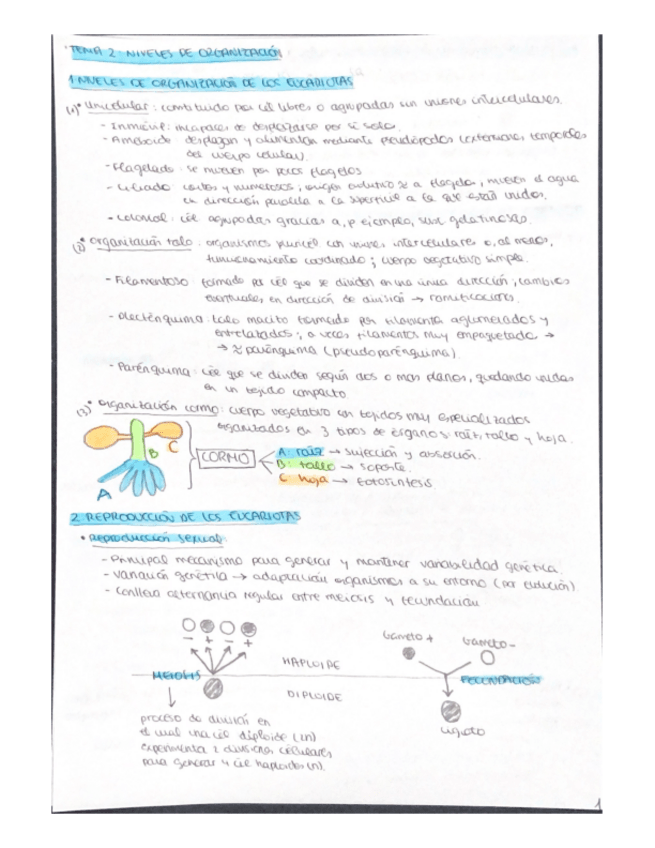 TEMA 2: NIVELES DE ORGANIZACIÓN
1 NIVELES DE ORGANIZACIÓN DE LOS EUCARIOTAS
(1)* Unicelular: constituido por cél libres o agrupadas sin uniones intercelulares.
- Inmóvil: incapaces de desplazarse por sí solo.
- Ameboide: desplazan y alimentan mediante pseudópodos (extensiones temporales
del cuerpo celular).
- Flagelado: se mueven por pocos flagelos
- Ciliado: cortos y numerosos; origen evolutivo ≈ a flagelos; mueven el agua
en dirección paralela a la superficie a la que están unidos.
- Colonial: cél agrupadas gracias a, p ejemplo, sust gelatinosas.
(2)* Organización talo: organismos pluricel con uniones intercelulares o, al menos,
funcionamiento coordinado; cuerpo vegetativo simple.
- Filamentoso: formado por cél que se dividen en una única dirección; cambios
eventuales en dirección de división → ramificaciones.
- Plecténquima: talo macizo formado por filamentos aglomerados y
entrelazados; a veces filamentos muy empaquetados →
→ ≈ parénquima (pseudoparénquima).
- Parénquima: cél que se dividen según dos o mas planos, quedando unidas
en un tejido compacto
(3)* Organización cormo: cuerpo vegetativo con tejidos muy especializados
organizados en 3 tipos de órganos: raíz, tallo y hoja.
A
B
C
CORMO
A: raíz → sujección y absorción.
B: tallo → soporte.
C hoja → fotosíntesis
2 REPRODUCCIÓN DE LOS EUCARIOTAS
• Reproducción sexual:
- Principal mecanismo para generar y mantener variabilidad genética.
- Variación genética → adaptación organismos a su entorno (por evolución)
- Conlleva alternancia regular entre meiosis y fecundación
- + - +
Gameto + Gameto -
HAPLOIDE
MEIOSIS
FECUNDACIÓN
DIPLOIDE
cigoto
proceso de división en
el cual una cél diploide (2n)
experimenta 2 divisiones celulares
para generar 4 cél haploides (n).
1